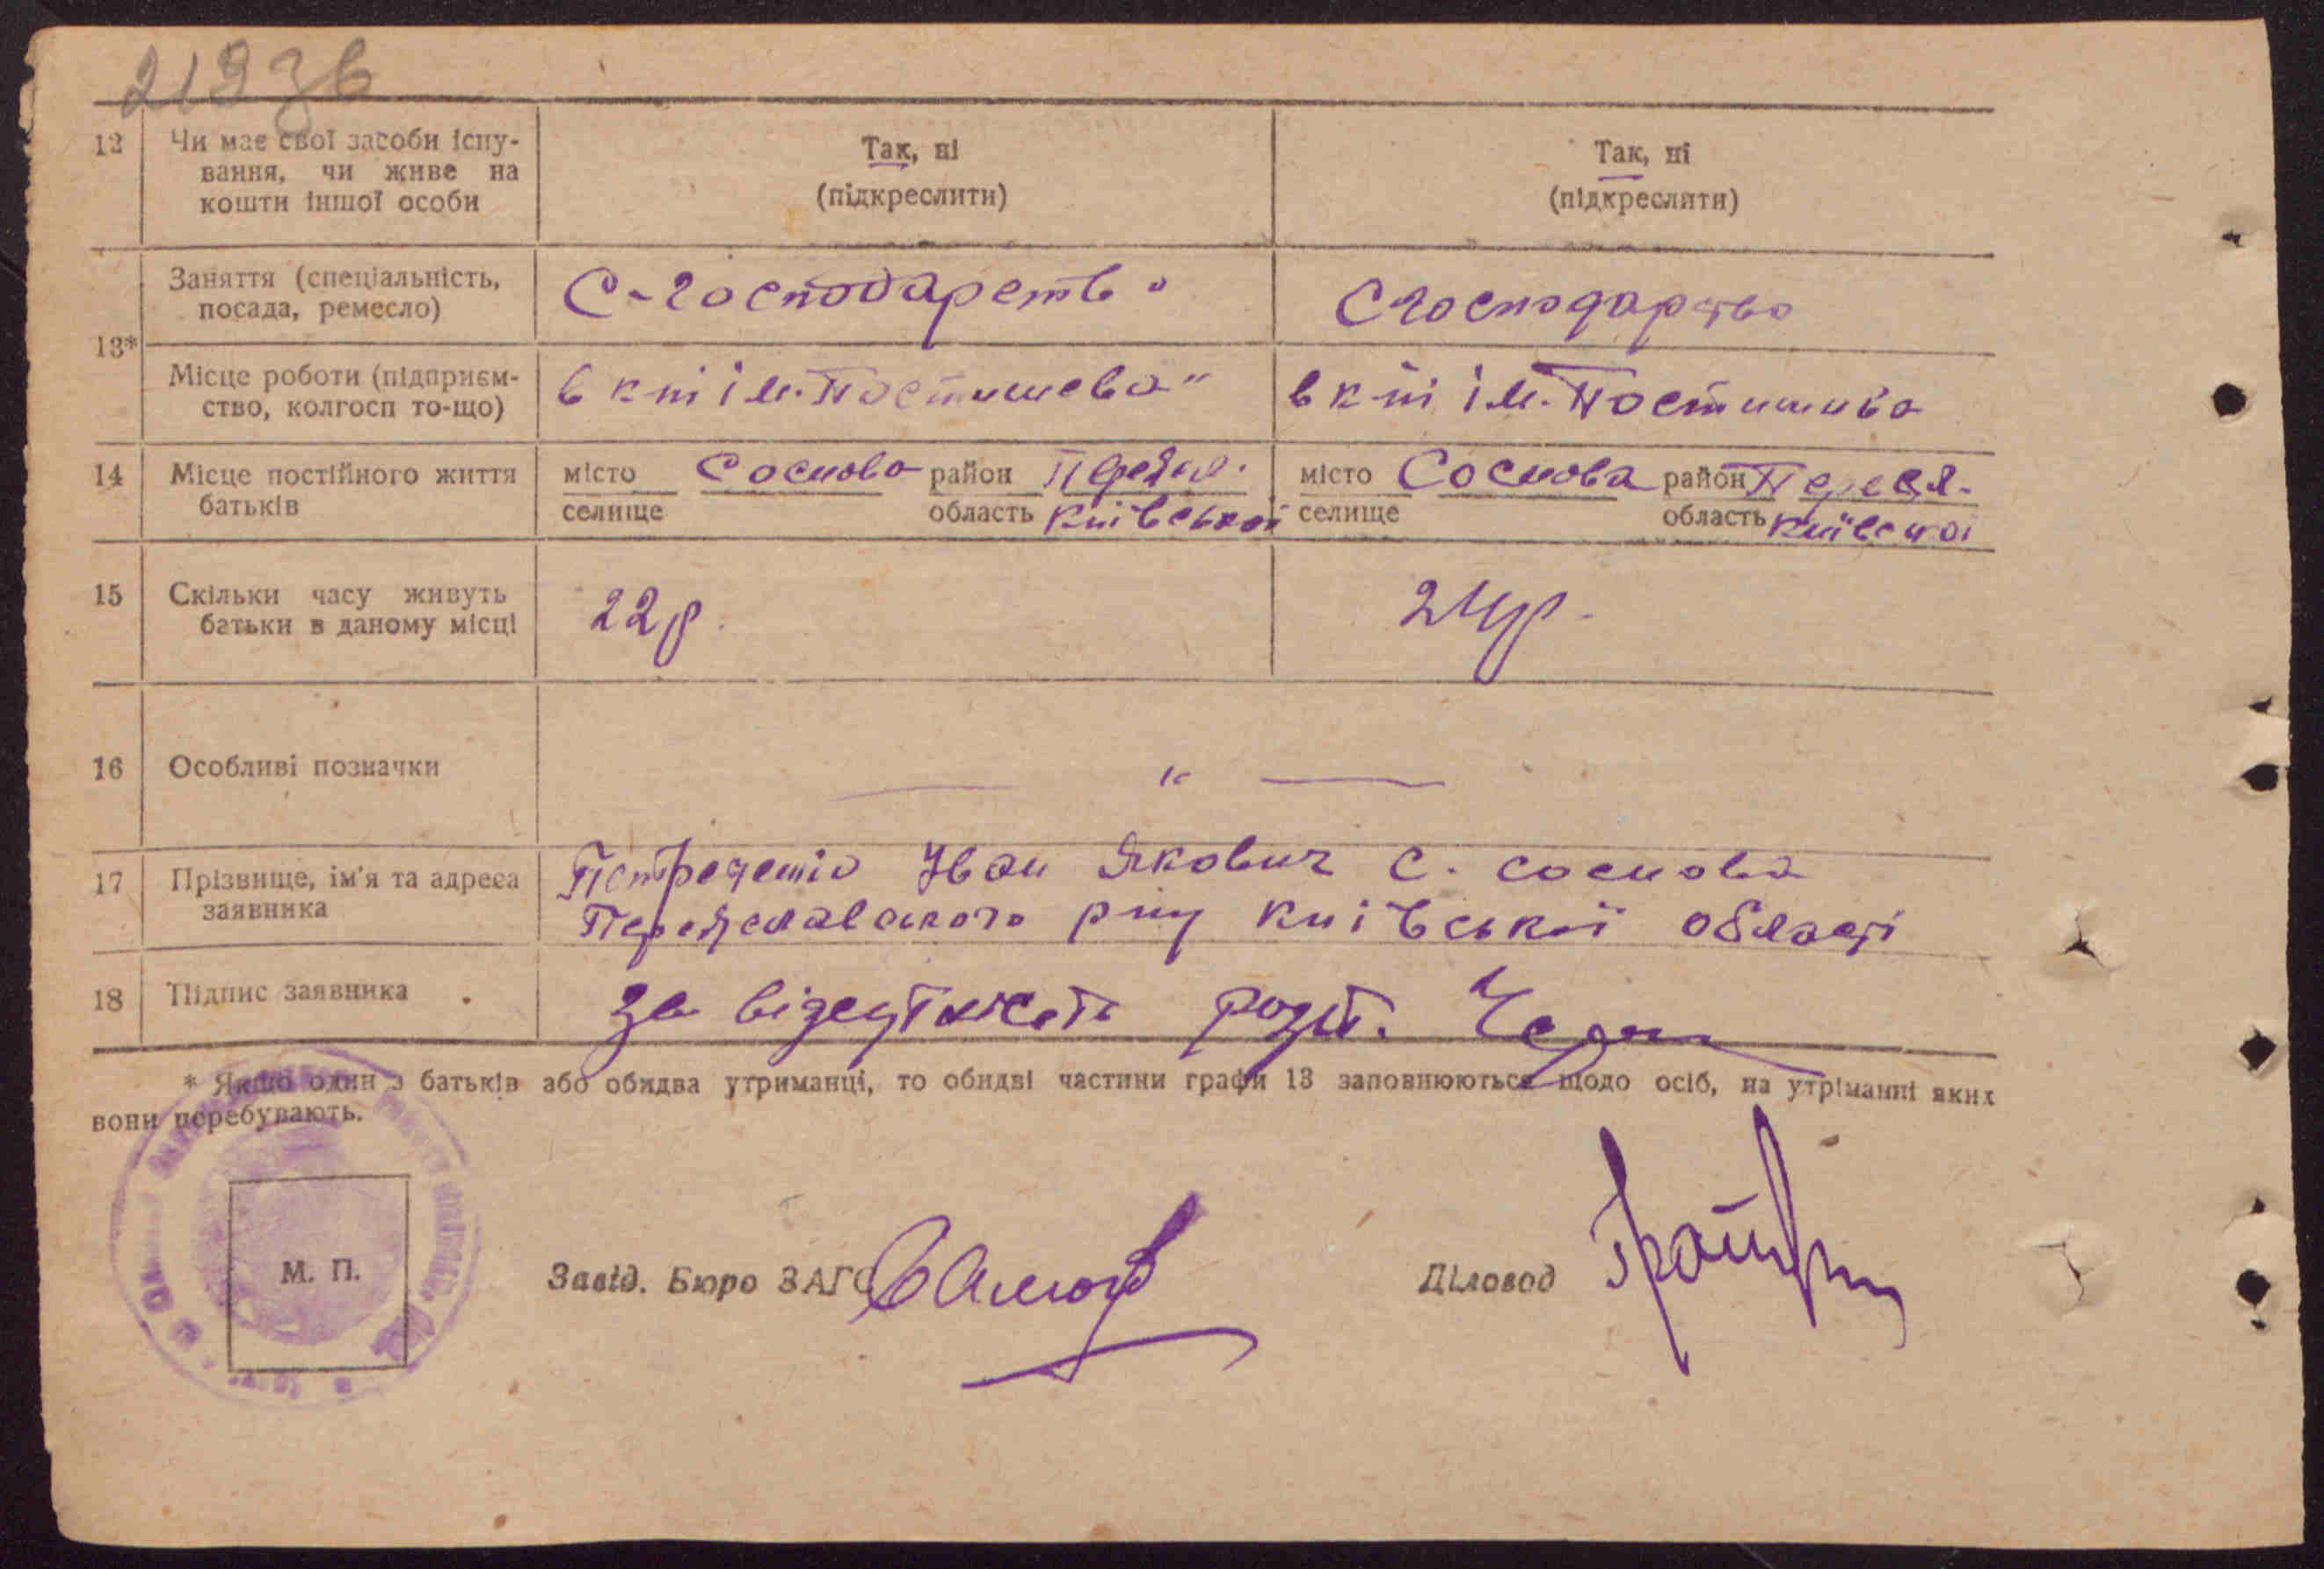 219зв
12 Чи має свої засоби існу-
вання, чи живе на
кошти іншої особи
Так, ні
(підкреслити)
Так, ні
(підкреслити)
13*
Заняття (спеціальність,
посада, ремесло)
С-господарство
С господарство
Місце роботи (підприєм-
ство, колгосп то-що)
в к-пі ім. Постишева"
в к-пі ім. Постишива
14 Місце постійного життя
батьків
місто Соснова район Переял.
селище область Київської
місто Соснова район Переял.
селище область Київскої
15 Скільки часу живуть
батьки в даному місці
22 р.
24 р.
16 Особливі позначки
— " —
17 Прізвище, ім'я та адреса
заявника
Іван Якович С. Соснова
Переяславського р-ну Київської області
18 Підпис заявника
за відсутність розп.
* Якщо один з батьків або обидва утриманці, то обидві частини графи 13 заповнюються щодо осіб, на утріманні яких
вони перебувають.
М. П.
Завід. Бюро ЗАГС
Діловод